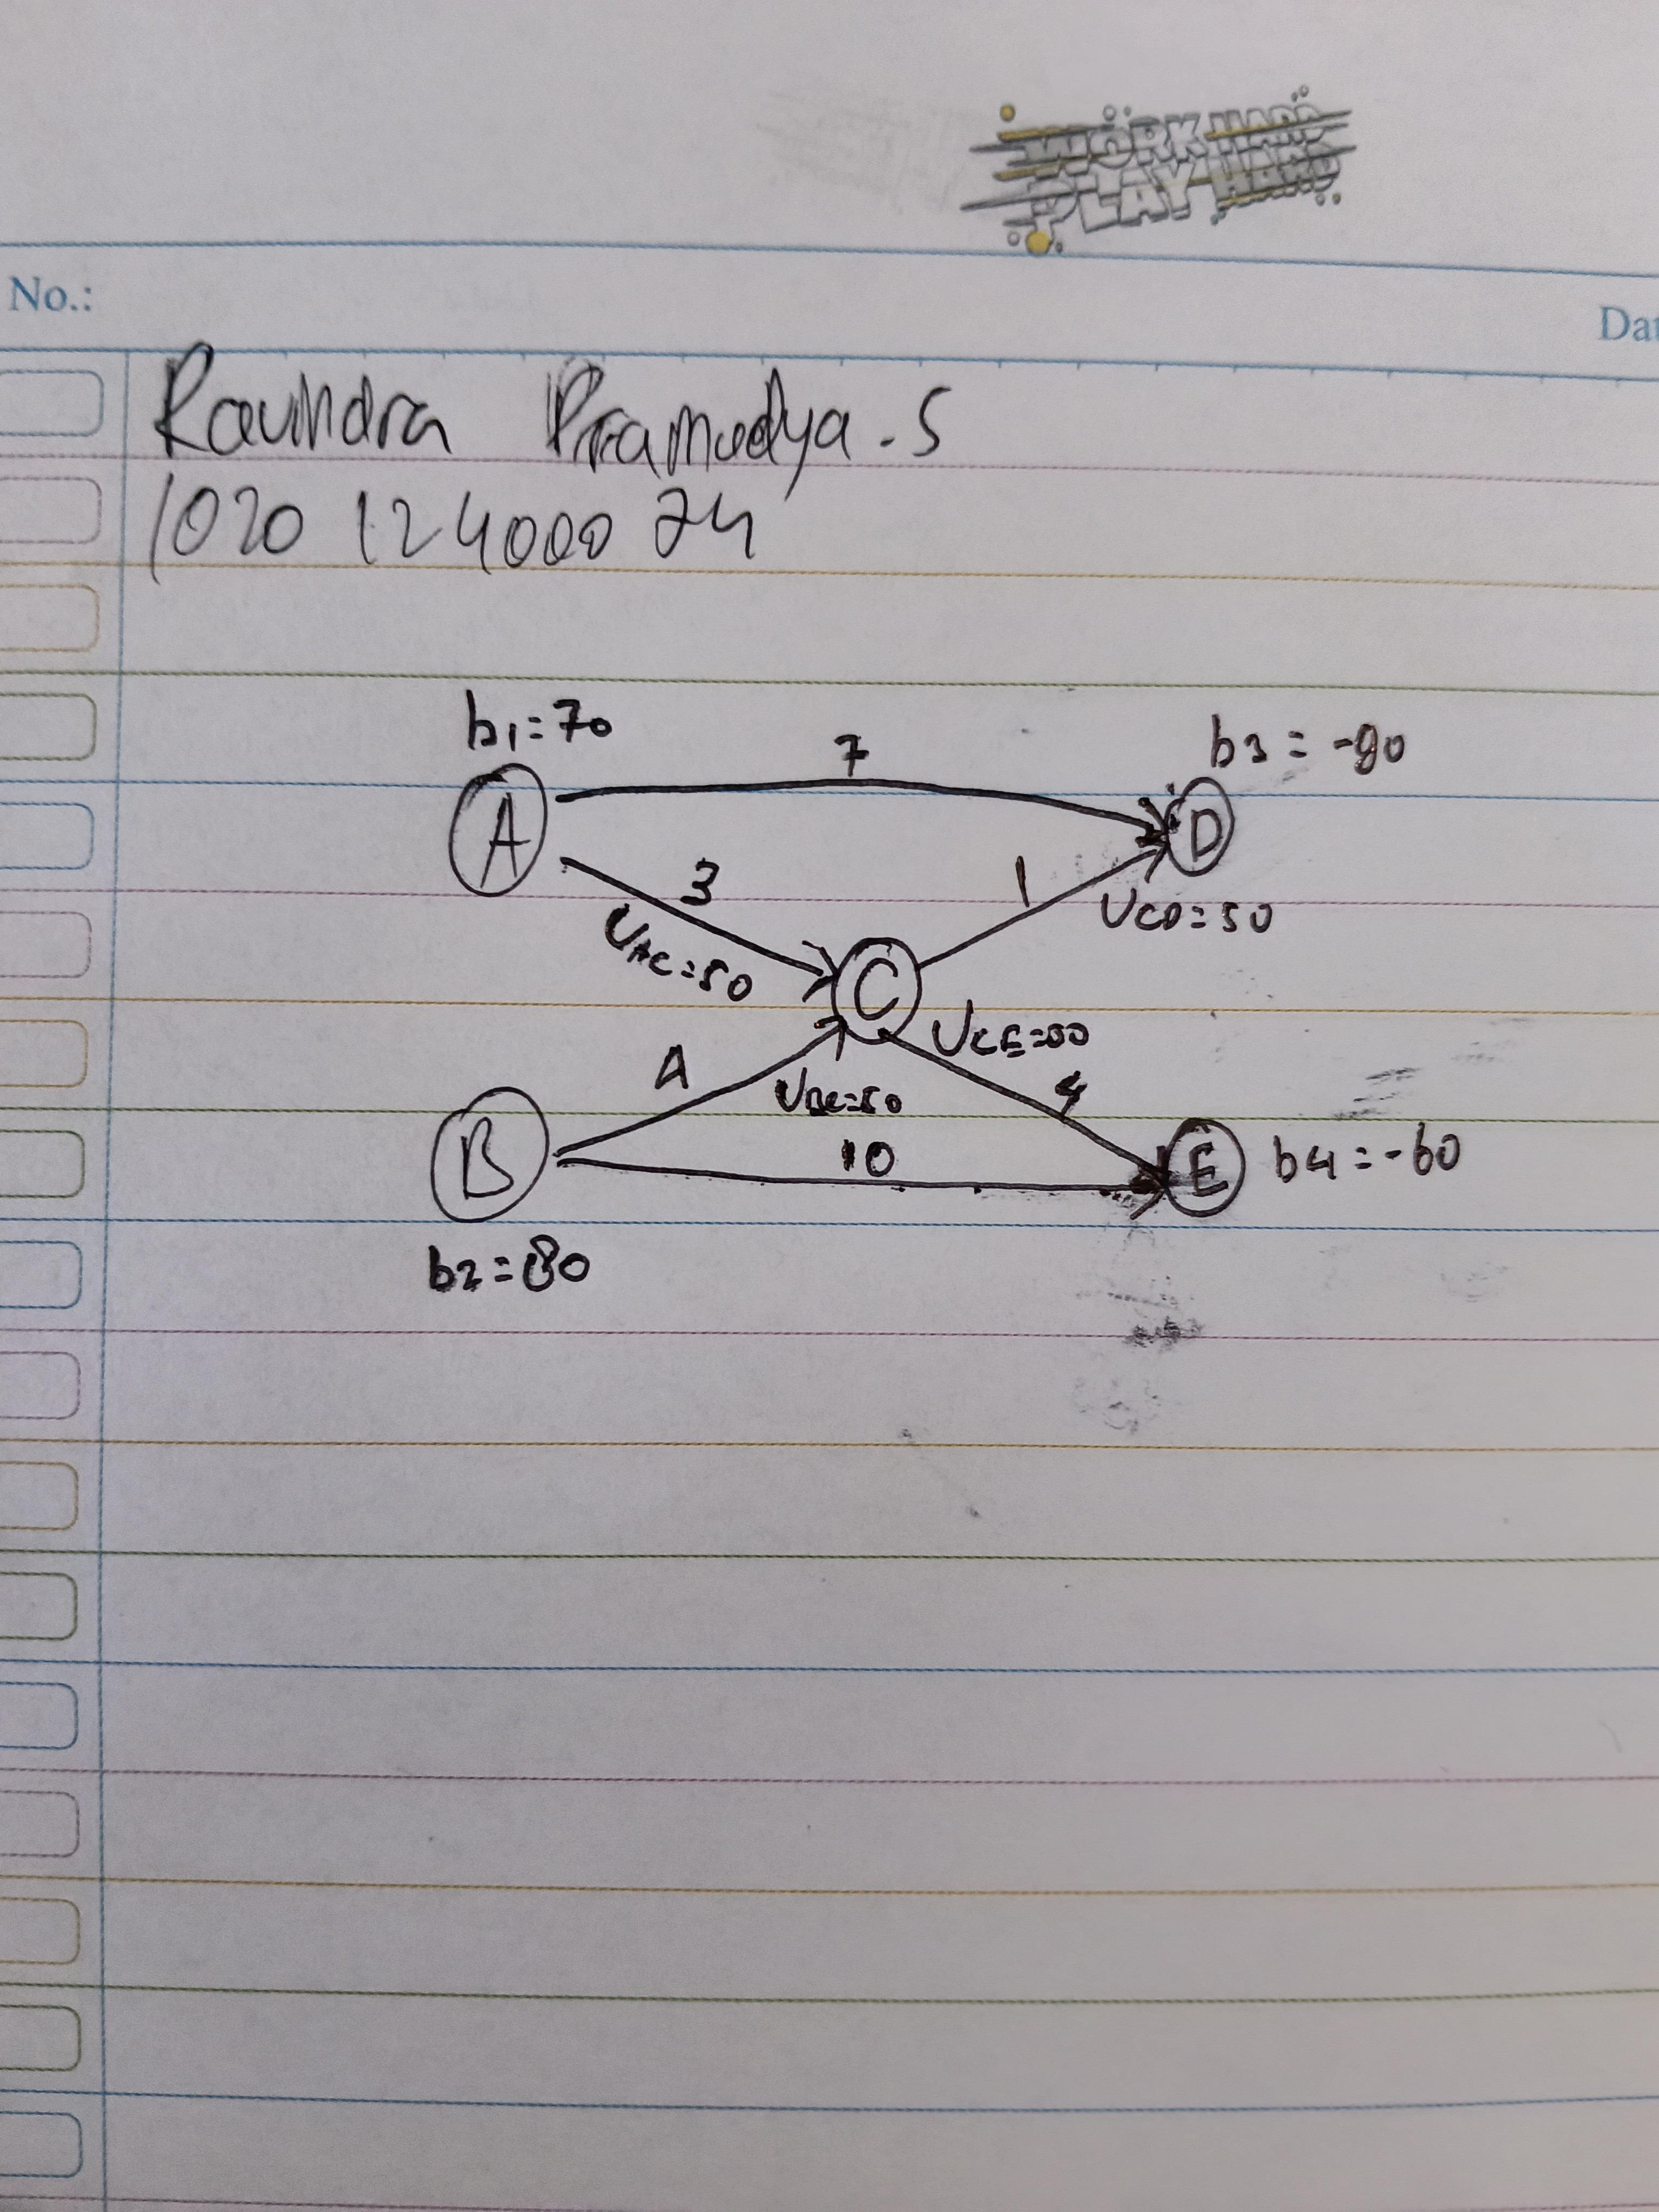 WORK HARD
PLAY HARD
No.:
Dat
Ravindra Pramudya.S
1020 124000 74
b1=70
7
b3 = -90
A
D
3
1
UAC=50
UCD=50
C
UCE=50
4
UBC=50
4
B
10
E
b4=-60
b2=80